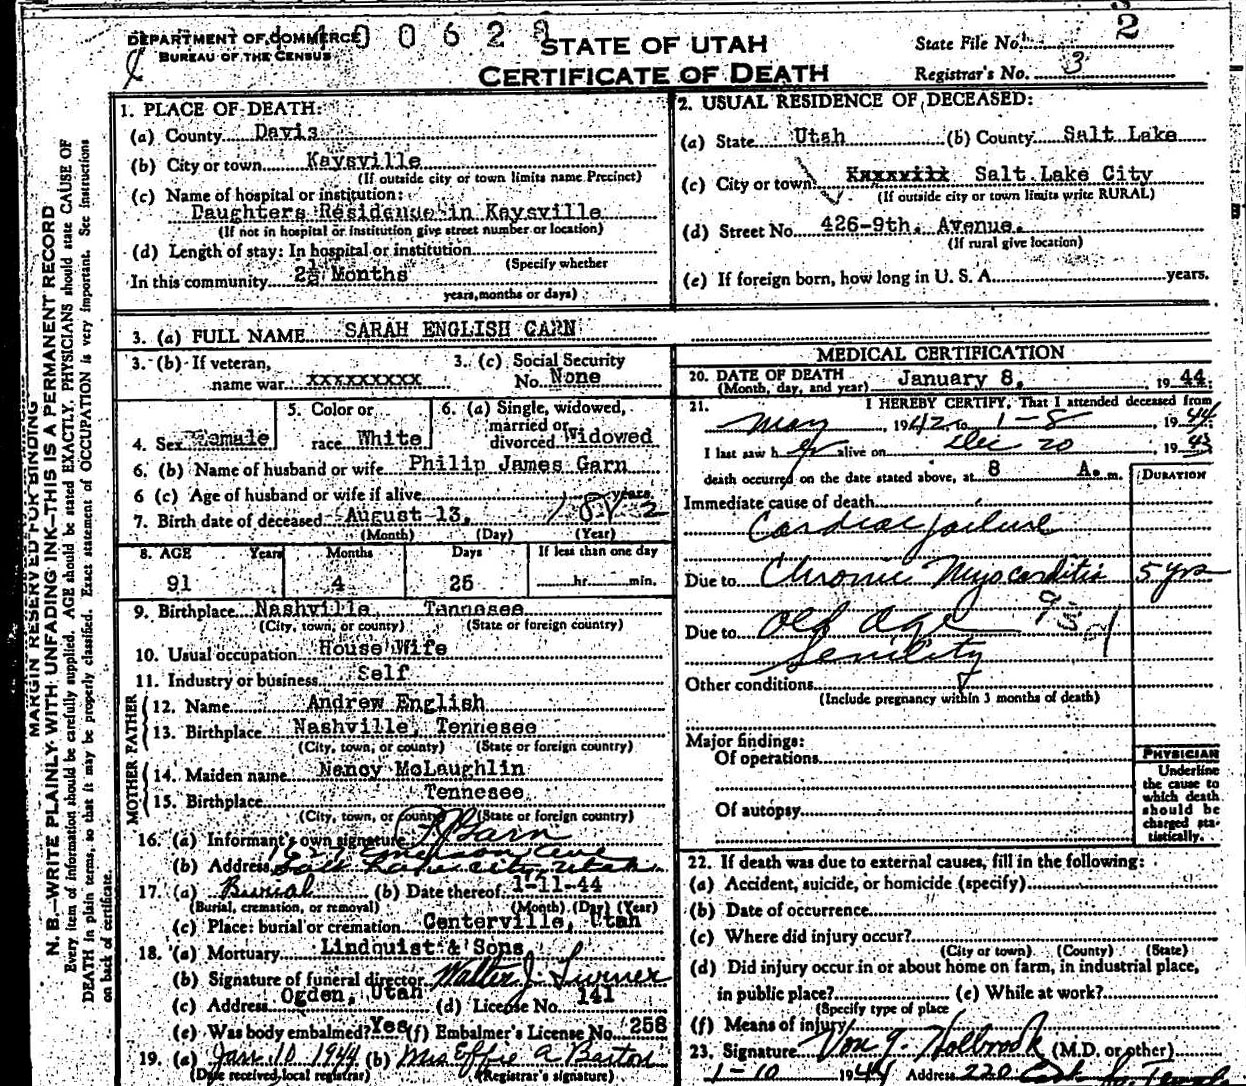 2
DEPARTMENT OF COMMERCE
BUREAU OF THE CENSUS
STATE OF UTAH
CERTIFICATE OF DEATH
State File No.
Registrar's No. 3
MARGIN RESERVED FOR BINDING
N. B.—WRITE PLAINLY WITH UNFADING INK—THIS IS A PERMANENT RECORD
Every item of information should be carefully supplied. AGE should be stated EXACTLY, PHYSICIANS should state CAUSE OF
DEATH in plain terms, so that it may be properly classified. Exact statement of OCCUPATION is very important. See instructions
on back of certificate.
1. PLACE OF DEATH:
(a) County Davis
(b) City or town Kaysville
(If outside city or town limits name Precinct)
(c) Name of hospital or institution:
Daughters Residence in Kaysville
(If not in hospital or institution give street number or location)
(d) Length of stay: In hospital or institution
(Specify whether
In this community 2½ Months
years, months or days)
2. USUAL RESIDENCE OF DECEASED:
(a) State Utah (b) County Salt Lake
(c) City or town Salt Lake City
(If outside city or town limits write RURAL)
(d) Street No. 426-9th. Avenue.
(If rural give location)
(e) If foreign born, how long in U. S. A. years.
3. (a) FULL NAME SARAH ENGLISH GARN
3. (b) If veteran,
name war xxxxxxxxx
3. (c) Social Security
No. None
4. Sex Female
5. Color or
race White
6. (a) Single, widowed,
married or
divorced Widowed
6. (b) Name of husband or wife Philip James Garn
6 (c) Age of husband or wife if alive years
7. Birth date of deceased August 13, 1852
(Month) (Day) (Year)
8. AGE Years Months Days If less than one day
91 4 25 hr. min.
9. Birthplace Nashville Tennesee
(City, town, or county) (State or foreign country)
10. Usual occupation House Wife
11. Industry or business Self
FATHER
12. Name Andrew English
13. Birthplace Nashville, Tennesee
(City, town, or county) (State or foreign country)
MOTHER
14. Maiden name Nancy McLaughlin
15. Birthplace Tennesee
(City, town, or county) (State or foreign country)
16. (a) Informant's own signature P J Garn
(b) Address Emerson Ave
Salt Lake City Utah
17. (a) Burial (b) Date thereof 1-11-44
(Burial, cremation, or removal) (Month) (Day) (Year)
(c) Place: burial or cremation Centerville, Utah
18. (a) Mortuary Lindquist & Sons
(b) Signature of funeral director Walter J. Turner
(c) Address Ogden, Utah (d) License No. 141
(e) Was body embalmed? Yes (f) Embalmer's License No. 258
19. (a) Jan 10 1944 (b) Mrs Effie A Barton
(Date received local registrar) (Registrar's signature)
MEDICAL CERTIFICATION
20. DATE OF DEATH
(Month, day, and year) January 8, 1944.
21. I HEREBY CERTIFY, That I attended deceased from
May, 1942 to 1-8, 1944
I last saw her alive on Dec 20, 1943
death occurred on the date stated above, at 8 A. m.
DURATION
Immediate cause of death
Cardiac failure
Due to Chronic Myocarditis 5 yrs
Due to Old age
Senility
Other conditions
(Include pregnancy within 3 months of death)
Major findings:
Of operations
Of autopsy
PHYSICIAN
Underline
the cause to
which death
should be
charged sta-
tistically.
22. If death was due to external causes, fill in the following:
(a) Accident, suicide, or homicide (specify)
(b) Date of occurrence
(c) Where did injury occur?
(City or town) (County) (State)
(d) Did injury occur in or about home on farm, in industrial place,
in public place? (e) While at work?
(Specify type of place
(f) Means of injury
23. Signature Von G. Holbrook (M.D. or other)
1-10 1944 Address 220 East So Temple